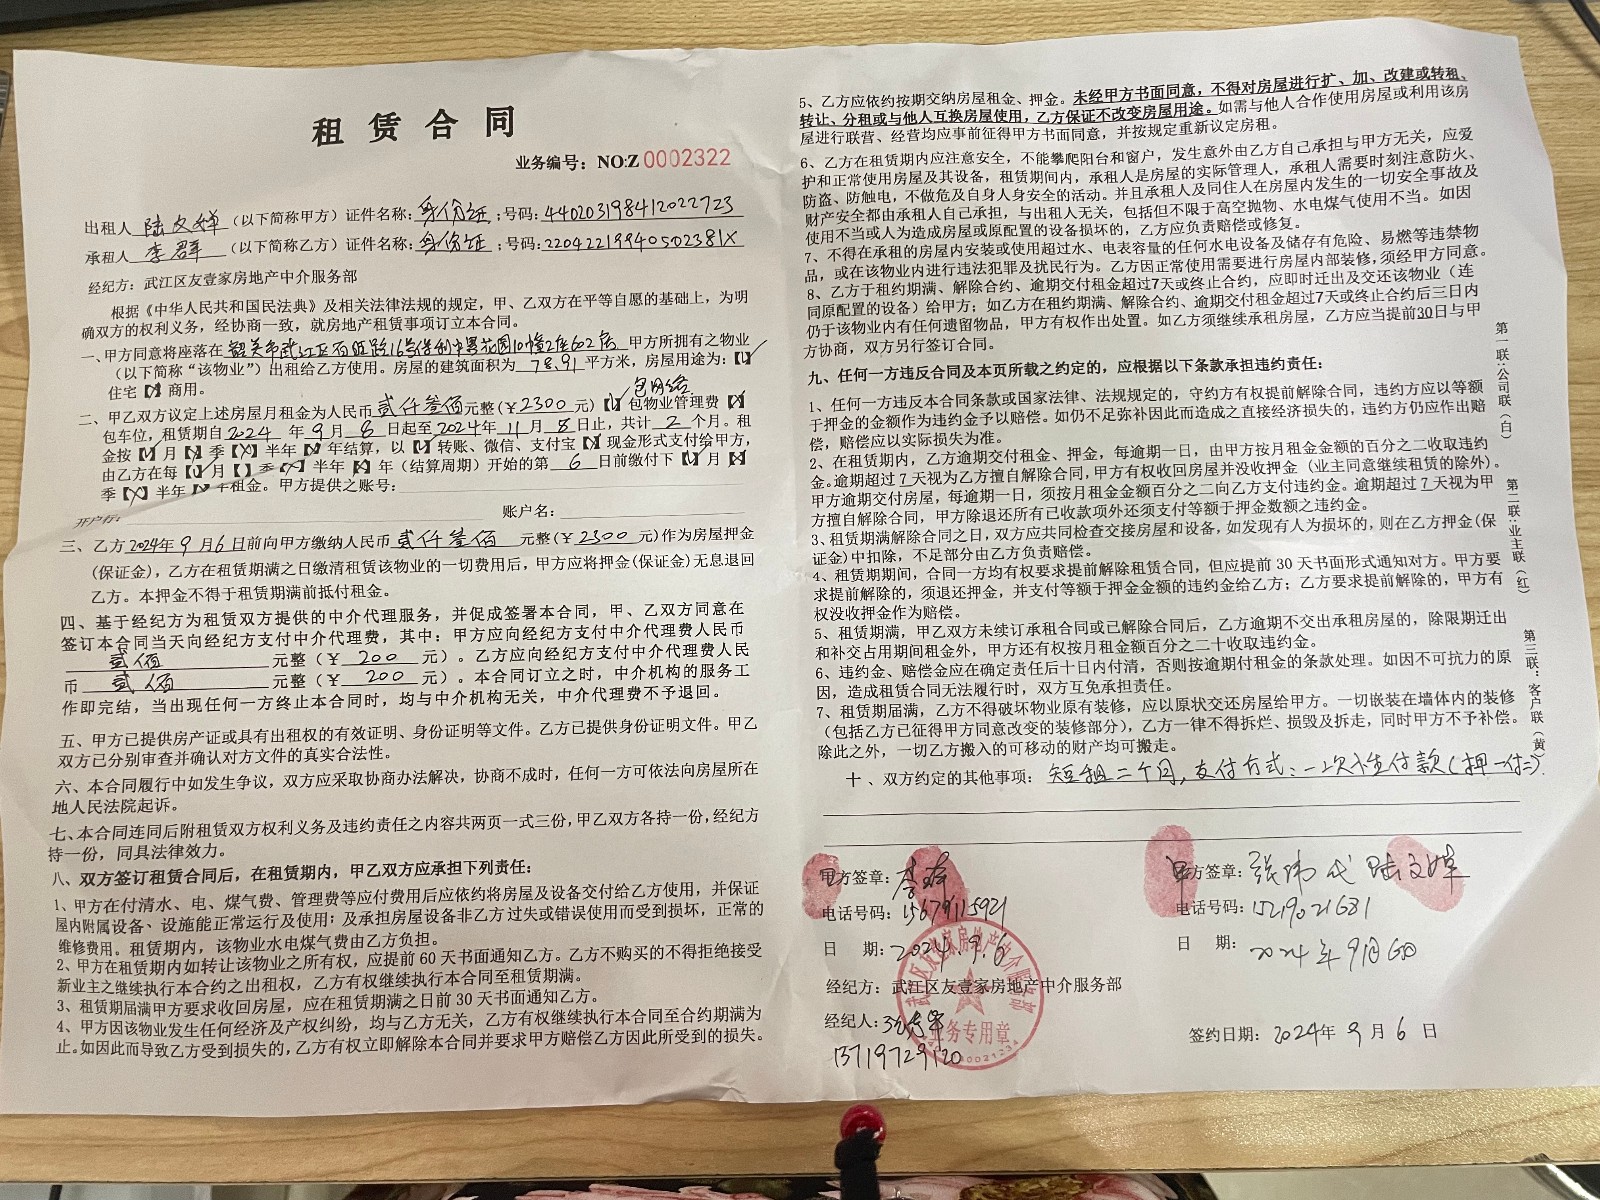 租 赁 合 同
业务编号：NO:Z 0002322
出租人 陆文婵 （以下简称甲方）证件名称：身份证；号码：440203198412022723
承租人 李群 （以下简称乙方）证件名称：身份证；号码：22042219940502381X
经纪方：武江区友壹家房地产中介服务部
根据《中华人民共和国民法典》及相关法律法规的规定，甲、乙双方在平等自愿的基础上，为明
确双方的权利义务，经协商一致，就房地产租赁事项订立本合同。
一、甲方同意将座落在 韶关市武江区百旺路16号保利中景花园10幢2座602房 甲方所拥有之物业
（以下简称“该物业”）出租给乙方使用。房屋的建筑面积为 78.91 平方米，房屋用途为：【√】
住宅【×】商用。
包网络
二、甲乙双方议定上述房屋月租金为人民币 贰仟叁佰 元整(￥2300 元)【√】包物业管理费【×】
包车位，租赁期自 2024 年 9 月 8 日起至 2024年 11 月 8 日止，共计 2 个月。租
金按【√】月【×】季【×】半年【×】年结算，以【√】转账、微信、支付宝【×】现金形式支付给甲方，
由乙方在每【√】月【】季【×】半年【×】年（结算周期）开始的第 6 日前缴付下【√】月【×】
季【×】半年【×】年租金。甲方提供之账号：
开户行： 账户名：
三、乙方 2024年 9 月 6 日前向甲方缴纳人民币 贰仟叁佰 元整(￥2300 元)作为房屋押金
(保证金)，乙方在租赁期满之日缴清租赁该物业的一切费用后，甲方应将押金(保证金)无息退回
乙方。本押金不得于租赁期满前抵付租金。
四、基于经纪方为租赁双方提供的中介代理服务，并促成签署本合同，甲、乙双方同意在
签订本合同当天向经纪方支付中介代理费，其中：甲方应向经纪方支付中介代理费人民币
贰佰 元整（￥ 200 元）。乙方应向经纪方支付中介代理费人民
币 贰佰 元整（￥ 200 元）。本合同订立之时，中介机构的服务工
作即完结，当出现任何一方终止本合同时，均与中介机构无关，中介代理费不予退回。
五、甲方已提供房产证或具有出租权的有效证明、身份证明等文件。乙方已提供身份证明文件。甲乙
双方已分别审查并确认对方文件的真实合法性。
六、本合同履行中如发生争议，双方应采取协商办法解决，协商不成时，任何一方可依法向房屋所在
地人民法院起诉。
七、本合同连同后附租赁双方权利义务及违约责任之内容共两页一式三份，甲乙双方各持一份，经纪方
持一份，同具法律效力。
八、双方签订租赁合同后，在租赁期内，甲乙双方应承担下列责任：
1、甲方在付清水、电、煤气费、管理费等应付费用后应依约将房屋及设备交付给乙方使用，并保证
屋内附属设备、设施能正常运行及使用；及承担房屋设备非乙方过失或错误使用而受到损坏，正常的
维修费用。租赁期内，该物业水电煤气费由乙方负担。
2、甲方在租赁期内如转让该物业之所有权，应提前60天书面通知乙方。乙方不购买的不得拒绝接受
新业主之继续执行本合约之出租权，乙方有权继续执行本合同至租赁期满。
3、租赁期届满甲方要求收回房屋，应在租赁期满之日前30天书面通知乙方。
4、甲方因该物业发生任何经济及产权纠纷，均与乙方无关，乙方有权继续执行本合同至合约期满为
止。如因此而导致乙方受到损失的，乙方有权立即解除本合同并要求甲方赔偿乙方因此所受到的损失。
5、乙方应依约按期交纳房屋租金、押金。未经甲方书面同意，不得对房屋进行扩、加、改建或转租、
转让、分租或与他人互换房屋使用，乙方保证不改变房屋用途。如需与他人合作使用房屋或利用该房
屋进行联营、经营均应事前征得甲方书面同意，并按规定重新议定房租。
6、乙方在租赁期内应注意安全，不能攀爬阳台和窗户，发生意外由乙方自己承担与甲方无关，应爱
护和正常使用房屋及其设备，租赁期间内，承租人是房屋的实际管理人，承租人需要时刻注意防火、
防盗，防触电，不做危及自身人身安全的活动。并且承租人及同住人在房屋内发生的一切安全事故及
财产安全都由承租人自己承担，与出租人无关，包括但不限于高空抛物、水电煤气使用不当。如因
使用不当或人为造成房屋或原配置的设备损坏的，乙方应负责赔偿或修复。
7、不得在承租的房屋内安装或使用超过水、电表容量的任何水电设备及储存有危险、易燃等违禁物
品，或在该物业内进行违法犯罪及扰民行为。乙方因正常使用需要进行房屋内部装修，须经甲方同意。
8、乙方于租约期满、解除合约、逾期交付租金超过7天或终止合约，应即时迁出及交还该物业（连
同原配置的设备）给甲方；如乙方在租约期满、解除合约、逾期交付租金超过7天或终止合约后三日内
仍于该物业内有任何遗留物品，甲方有权作出处置。如乙方须继续承租房屋，乙方应当提前30日与甲
方协商，双方另行签订合同。
九、任何一方违反合同及本页所载之约定的，应根据以下条款承担违约责任：
1、任何一方违反本合同条款或国家法律、法规规定的，守约方有权提前解除合同，违约方应以等额
于押金的金额作为违约金予以赔偿。如仍不足弥补因此而造成之直接经济损失的，违约方仍应作出赔
偿，赔偿应以实际损失为准。
2、在租赁期内，乙方逾期交付租金、押金，每逾期一日，由甲方按月租金金额的百分之二收取违约
金。逾期超过7天视为乙方擅自解除合同，甲方有权收回房屋并没收押金（业主同意继续租赁的除外）。
甲方逾期交付房屋，每逾期一日，须按月租金金额百分之二向乙方支付违约金。逾期超过7天视为甲
方擅自解除合同，甲方除退还所有已收款项外还须支付等额于押金数额之违约金。
3、租赁期满解除合同之日，双方应共同检查交接房屋和设备，如发现有人为损坏的，则在乙方押金(保
证金)中扣除，不足部分由乙方负责赔偿。
4、租赁期期间，合同一方均有权要求提前解除租赁合同，但应提前30天书面形式通知对方。甲方要
求提前解除的，须退还押金，并支付等额于押金金额的违约金给乙方；乙方要求提前解除的，甲方有
权没收押金作为赔偿。
5、租赁期满，甲乙双方未续订承租合同或已解除合同后，乙方逾期不交出承租房屋的，除限期迁出
和补交占用期间租金外，甲方还有权按月租金额百分之二十收取违约金。
6、违约金、赔偿金应在确定责任后十日内付清，否则按逾期付租金的条款处理。如因不可抗力的原
因，造成租赁合同无法履行时，双方互免承担责任。
7、租赁期届满，乙方不得破坏物业原有装修，应以原状交还房屋给甲方。一切嵌装在墙体内的装修
（包括乙方已征得甲方同意改变的装修部分），乙方一律不得拆烂、损毁及拆走，同时甲方不予补偿。
除此之外，一切乙方搬入的可移动的财产均可搬走。
十、双方约定的其他事项：短租二个月，支付方式：一次性付款（押一付二）.
第一联：公司联（白）
第二联：业主联（红）
第三联：客户联（黄）
方签章：李群
电话号码：15679115921
日 期：2024.9.6
经纪方：武江区友壹家房地产中介服务部
经纪人：
13719729120
武江区友壹家房地产中介服务部
业务专用章
甲方签章：张伟 代 陆文婵
电话号码：15219021681
日 期：2024年9月6日
签约日期：2024年 9 月 6 日